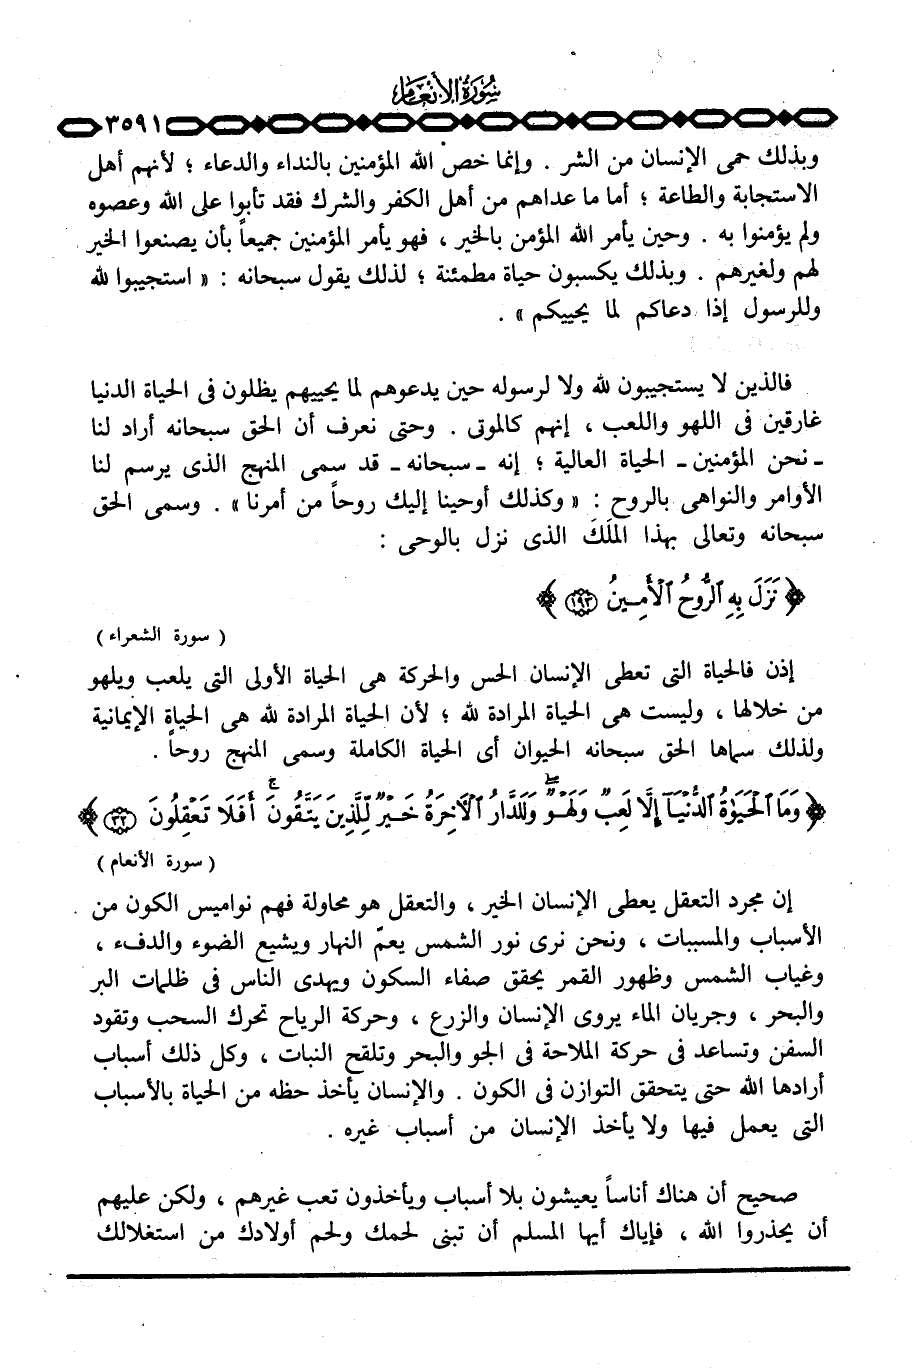 سورة الأنعام
٣٥٩١
وبذلك حمى الإنسان من الشر . وإنما خص الله المؤمنين بالنداء والدعاء ؛ لأنهم أهل
الاستجابة والطاعة ؛ أما ما عداهم من أهل الكفر والشرك فقد تأبوا على الله وعصوه
ولم يؤمنوا به . وحين يأمر الله المؤمن بالخير ، فهو يأمر المؤمنين جميعاً بأن يصنعوا الخير
لهم ولغيرهم . وبذلك يكسبون حياة مطمئنة ؛ لذلك يقول سبحانه : « استجيبوا لله
وللرسول إذا دعاكم لما يحييكم » .
فالذين لا يستجيبون لله ولا لرسوله حين يدعوهم لما يحييهم يظلون فى الحياة الدنيا
غارقين فى اللهو واللعب ، إنهم كالموتى . وحتى نعرف أن الحق سبحانه أراد لنا
ـ نحن المؤمنين ـ الحياة العالية ؛ إنه ـ سبحانه ـ قد سمى المنهج الذى يرسم لنا
الأوامر والنواهى بالروح : « وكذلك أوحينا إليك روحاً من أمرنا » . وسمى الحق
سبحانه وتعالى بهذا الملَكَ الذى نزل بالوحى :
﴿ نَزَلَ بِهِ ٱلرُّوحُ ٱلْأَمِينُ ١٩٣ ﴾
( سورة الشعراء )
إذن فالحياة التى تعطى الإنسان الحس والحركة هى الحياة الأولى التى يلعب ويلهو
من خلالها ، وليست هى الحياة المرادة لله ؛ لأن الحياة المرادة لله هى الحياة الإيمانية
ولذلك سماها الحق سبحانه الحيوان أى الحياة الكاملة وسمى المنهج روحاً .
﴿ وَمَا ٱلْحَيَوٰةُ ٱلدُّنْيَآ إِلَّا لَعِبٌ وَلَهْوٌ ۖ وَلَلدَّارُ ٱلْآخِرَةُ خَيْرٌ لِّلَّذِينَ يَتَّقُونَ ۗ أَفَلَا تَعْقِلُونَ ٣٢ ﴾
( سورة الأنعام )
إن مجرد التعقل يعطى الإنسان الخير ، والتعقل هو محاولة فهم نواميس الكون من
الأسباب والمسببات ، ونحن نرى نور الشمس يعمّ النهار ويشيع الضوء والدفء ،
وغياب الشمس وظهور القمر يحقق صفاء السكون ويهدى الناس فى ظلمات البر
والبحر ، وجريان الماء يروى الإنسان والزرع ، وحركة الرياح تحرك السحب وتقود
السفن وتساعد فى حركة الملاحة فى الجو والبحر وتلقح النبات ، وكل ذلك أسباب
أرادها الله حتى يتحقق التوازن فى الكون . والإنسان يأخذ حظه من الحياة بالأسباب
التى يعمل فيها ولا يأخذ الإنسان من أسباب غيره .
صحيح أن هناك أناساً يعيشون بلا أسباب ويأخذون تعب غيرهم ، ولكن عليهم
أن يحذروا الله ، فإياك أيها المسلم أن تبنى لحمك ولحم أولادك من استغلالك